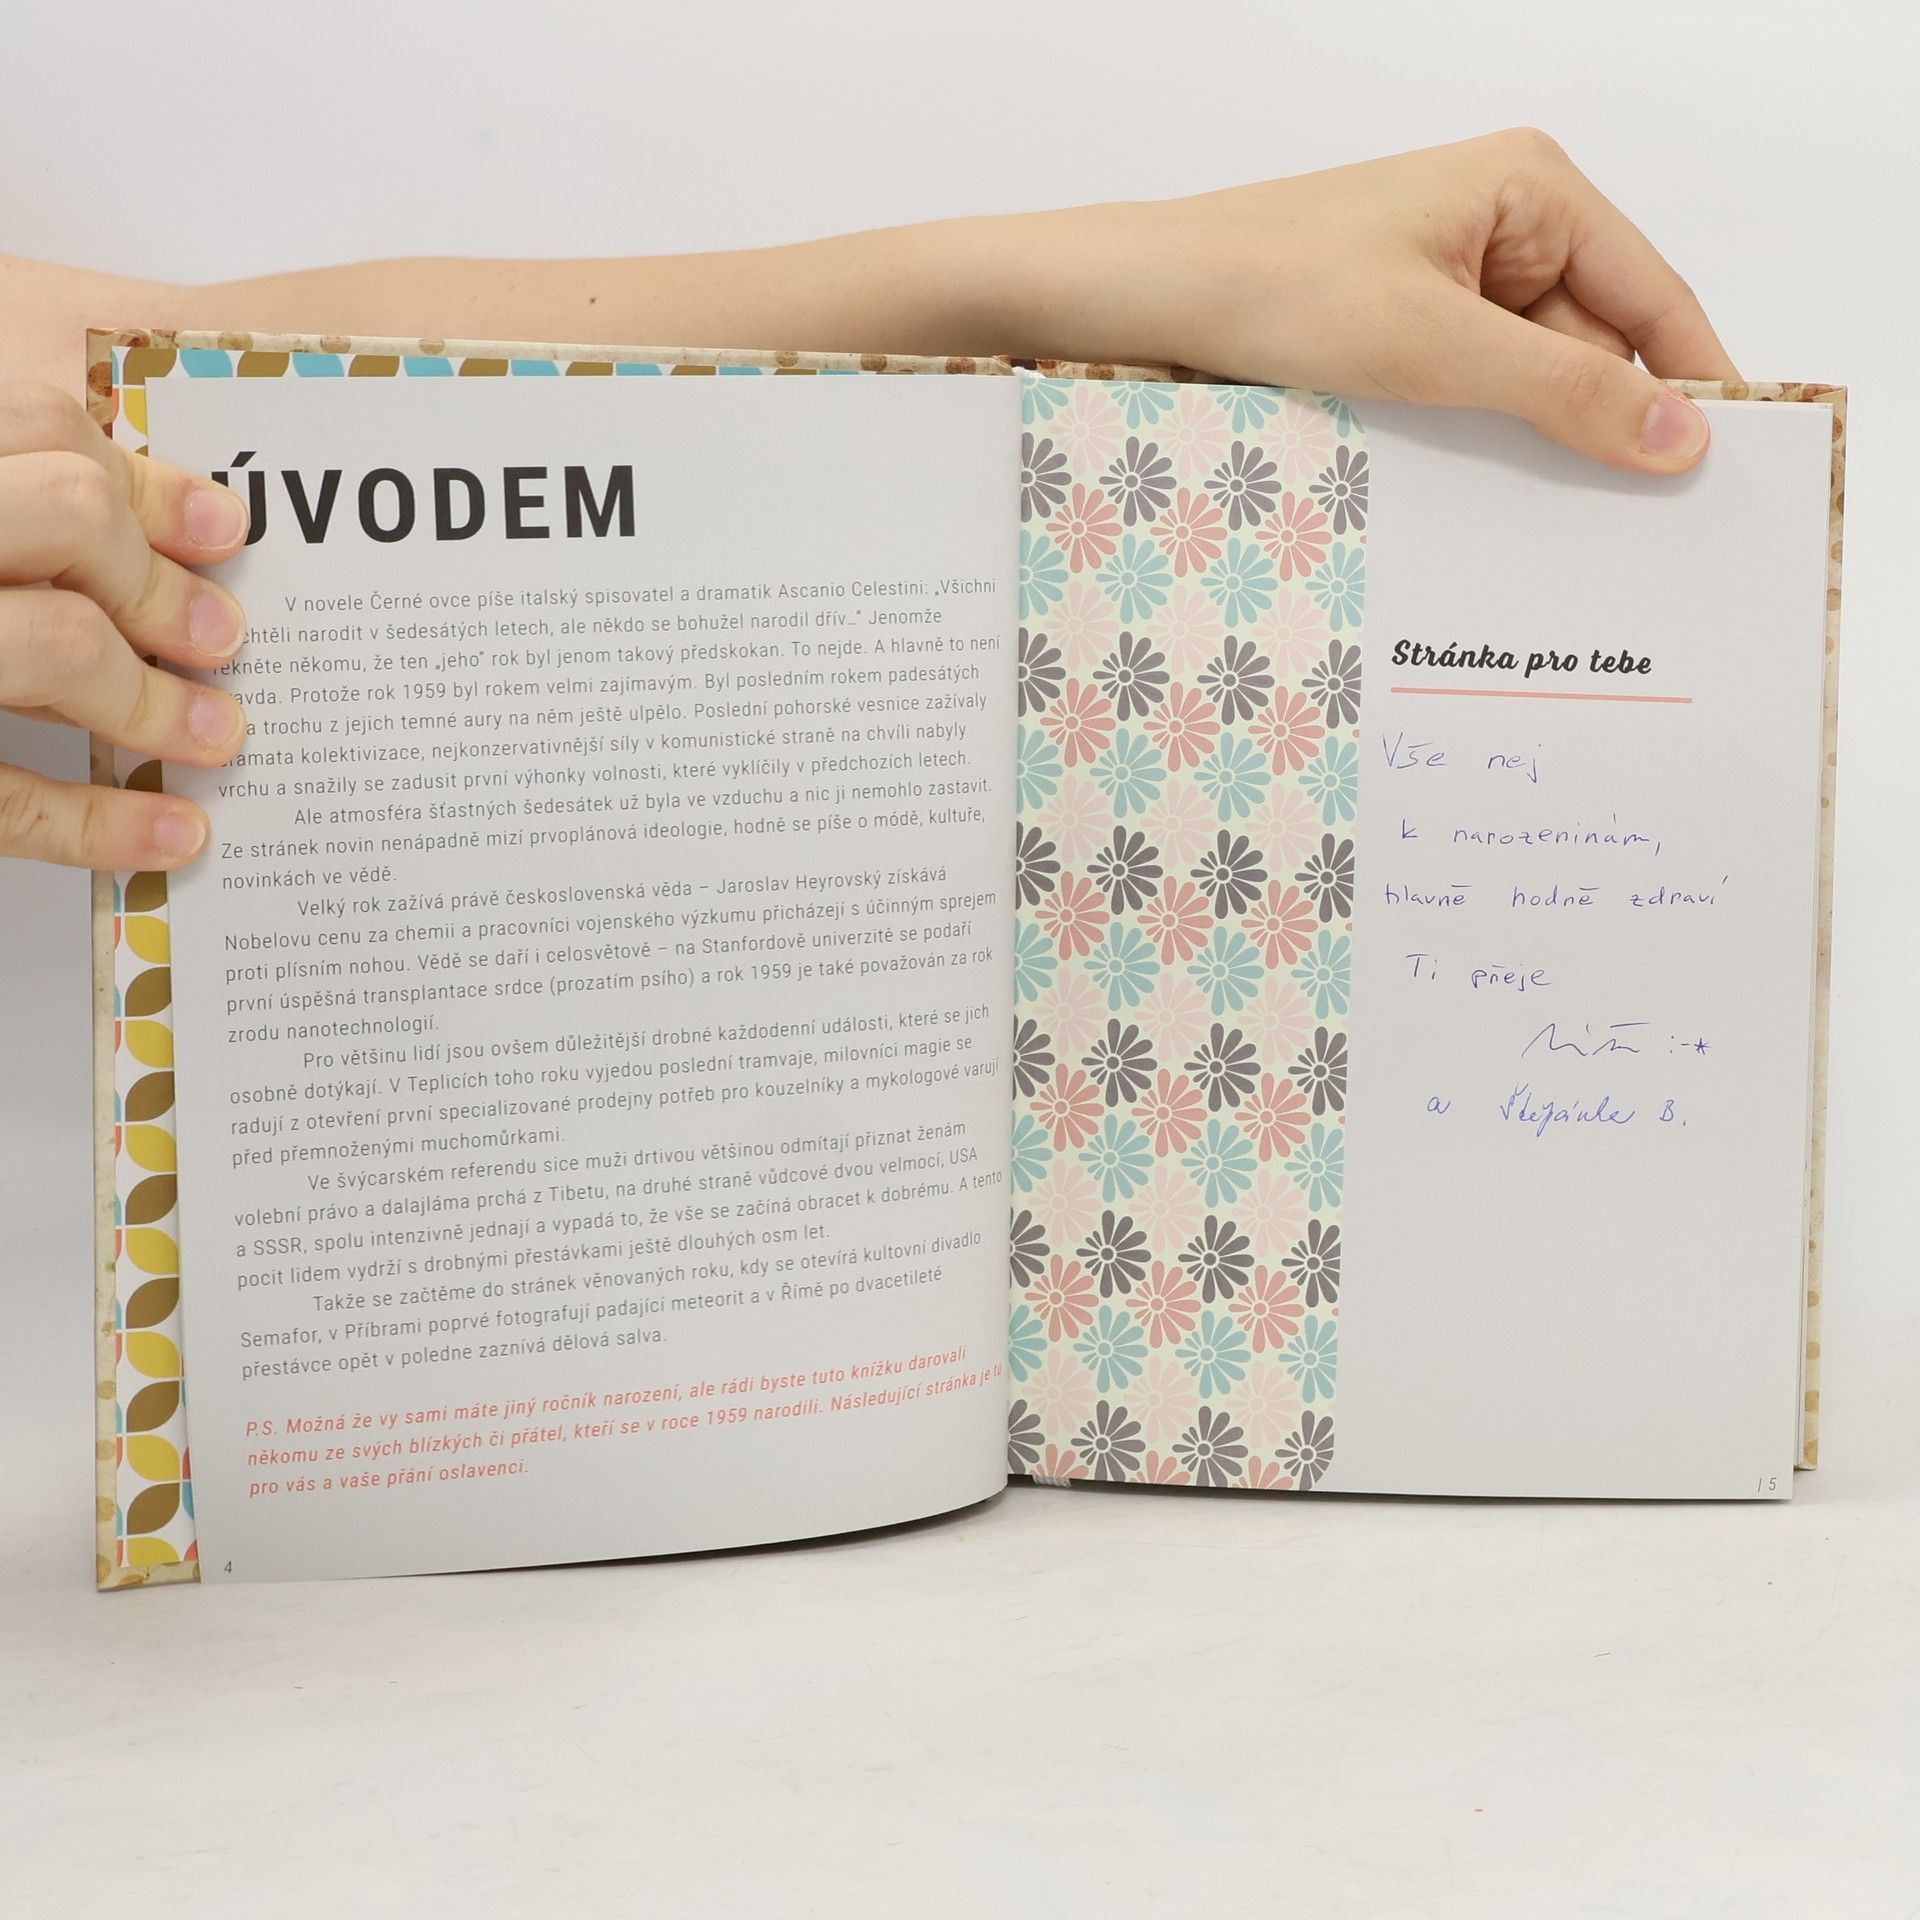 ÚVODEM
V novele Černé ovce píše italský spisovatel a dramatik Ascanio Celestini: „Všichni
chtěli narodit v šedesátých letech, ale někdo se bohužel narodil dřív…“ Jenomže
řekněte někomu, že ten „jeho“ rok byl jenom takový předskokan. To nejde. A hlavně to není
pravda. Protože rok 1959 byl rokem velmi zajímavým. Byl posledním rokem padesátých
a trochu z jejich temné aury na něm ještě ulpělo. Poslední pohorské vesnice zažívaly
dramata kolektivizace, nejkonzervativnější síly v komunistické straně na chvíli nabyly
vrchu a snažily se zadusit první výhonky volnosti, které vyklíčily v předchozích letech.
Ale atmosféra šťastných šedesátek už byla ve vzduchu a nic ji nemohlo zastavit.
Ze stránek novin nenápadně mizí prvoplánová ideologie, hodně se píše o módě, kultuře,
novinkách ve vědě.
Velký rok zažívá právě československá věda – Jaroslav Heyrovský získává
Nobelovu cenu za chemii a pracovníci vojenského výzkumu přicházejí s účinným sprejem
proti plísním nohou. Vědě se daří i celosvětově – na Stanfordově univerzitě se podaří
první úspěšná transplantace srdce (prozatím psího) a rok 1959 je také považován za rok
zrodu nanotechnologií.
Pro většinu lidí jsou ovšem důležitější drobné každodenní události, které se jich
osobně dotýkají. V Teplicích toho roku vyjedou poslední tramvaje, milovníci magie se
radují z otevření první specializované prodejny potřeb pro kouzelníky a mykologové varují
před přemnoženými muchomůrkami.
Ve švýcarském referendu sice muži drtivou většinou odmítají přiznat ženám
volební právo a dalajláma prchá z Tibetu, na druhé straně vůdcové dvou velmocí, USA
a SSSR, spolu intenzivně jednají a vypadá to, že vše se začíná obracet k dobrému. A tento
pocit lidem vydrží s drobnými přestávkami ještě dlouhých osm let.
Takže se začtěme do stránek věnovaných roku, kdy se otevírá kultovní divadlo
Semafor, v Příbrami poprvé fotografují padající meteorit a v Římě po dvacetileté
přestávce opět v poledne zaznívá dělová salva.
P.S. Možná že vy sami máte jiný ročník narození, ale rádi byste tuto knížku darovali
někomu ze svých blízkých či přátel, kteří se v roce 1959 narodili. Následující stránka je tu
pro vás a vaše přání oslavenci.
4
Stránka pro tebe
Vše nej
k narozeninám,
hlavně hodně zdraví
Ti přeje
:-*
a Štěpánka B.
/ 5